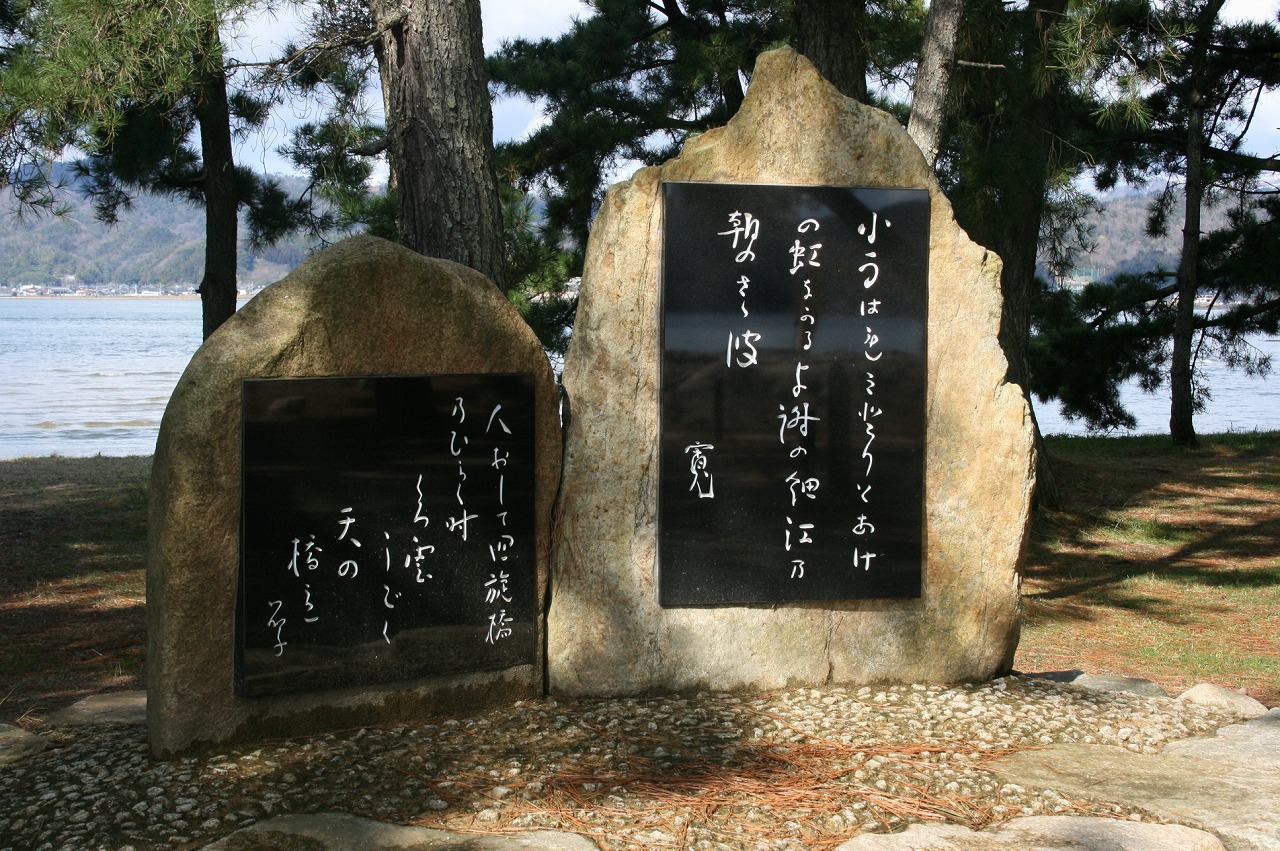 小雨はれミどりとあけ
の虹なかるよ謝の細江乃
朝のさゝ波
寛
人おして回旋橋
乃ひらく時
くろ雲
うごく
天の
橋立
晶子